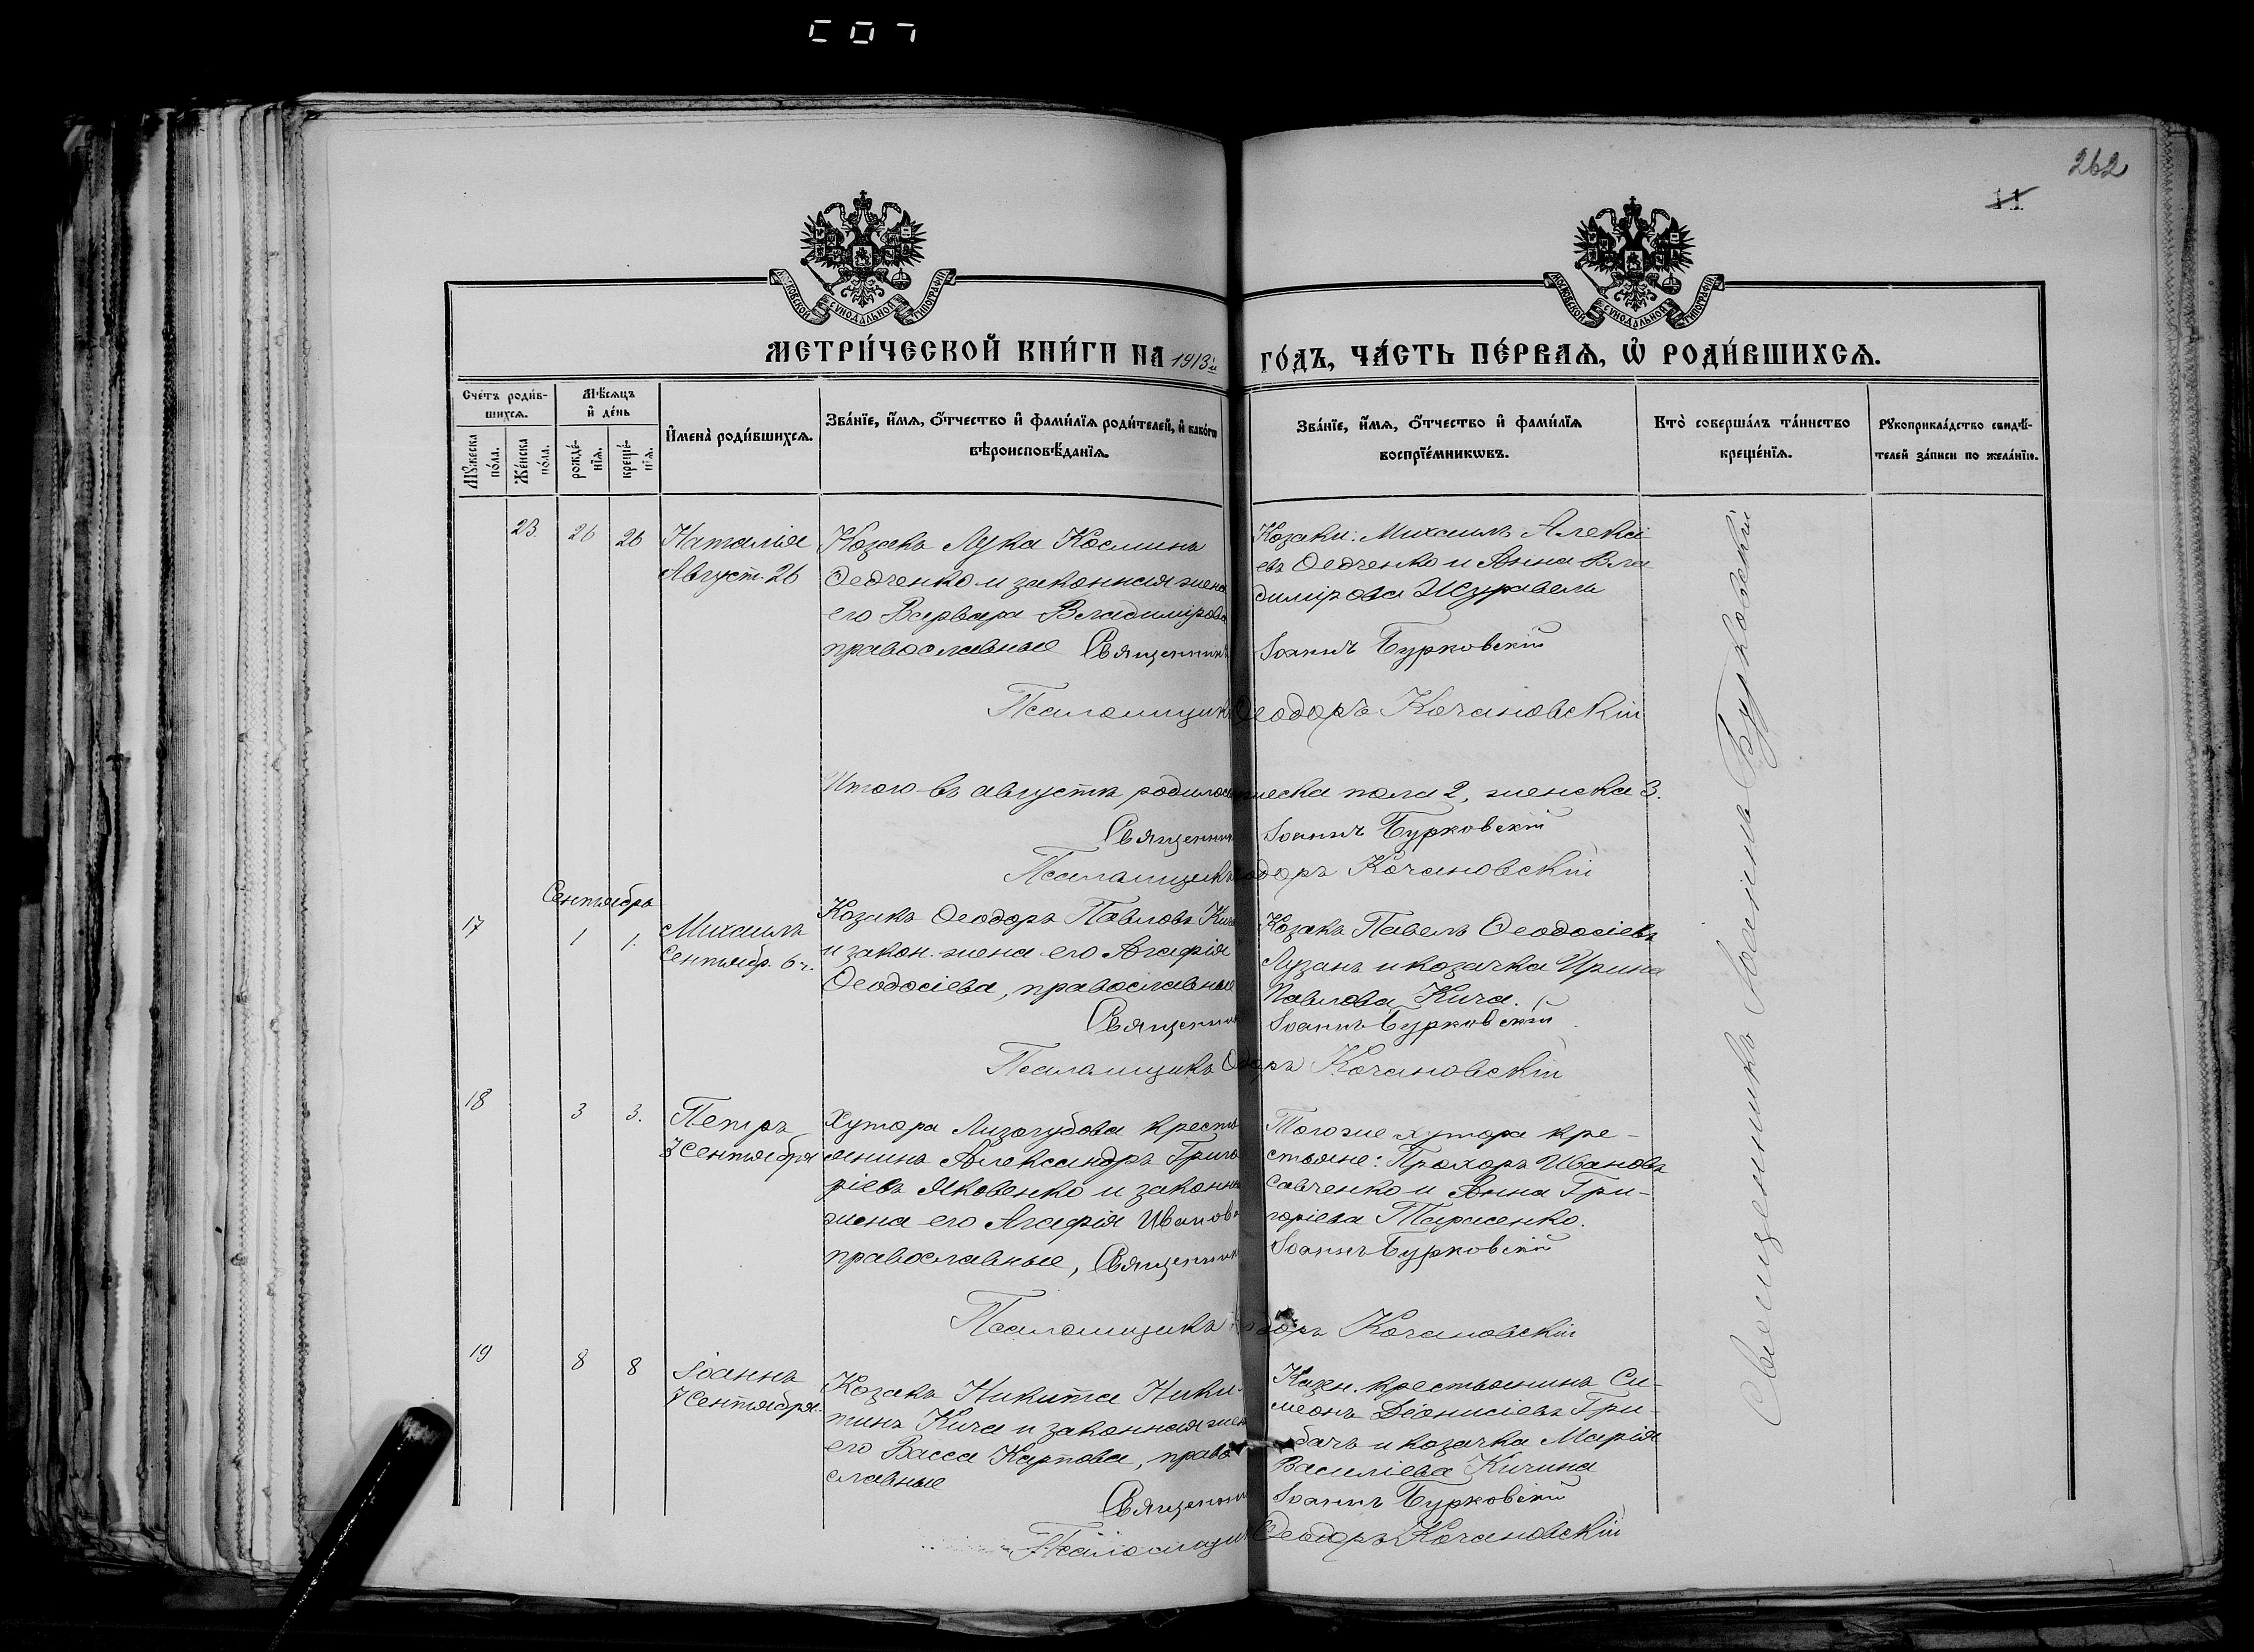 262
11
МОСКОВСКОЙ СѴНОДАЛЬНОЙ ТИПОГРАФІИ
МОСКОВСКОЙ СѴНОДАЛЬНОЙ ТИПОГРАФІИ
МЕТРИ́ЧЕСКОЙ КНИ́ГИ НА 1913й ГО́ДЪ, ЧА́СТЬ ПЕ́РВАѦ, Ѡ҆ РОДИ́ВШИХСѦ.
Сче́тъ роди́в-
шихсѧ.
Мꙋ́жеска
по́ла.
Же́нска
по́ла.
Мѣ́сѧцъ
и҆ де́нь
рожде́-
нїѧ.
креще́-
нїѧ.
И҆мена̀ роди́вшихсѧ.
Зва́нїе, и҆́мѧ, ѻ҆́тчество и҆ фами́лїѧ роди́телей, и҆ како́гѡ
вѣроисповѣ́данїѧ.
Зва́нїе, и҆́мѧ, ѻ҆́тчество и҆ фами́лїѧ
воспрїе́мникѡвъ.
Кто̀ соверша́лъ та́инство
креще́нїѧ.
Рꙋкоприкла́дство свидѣ́-
телей за́писи по жела́нїю.
23. 26 26
Наталія
Август. 26
Козакъ Лука Косминъ
Ѳедченко и законная жена
его Варвара Владимірова
православные Священникъ
Козаки: Михаилъ Алексі-
евъ Ѳедченко и Анна Вла-
димірова Журавель
Іоаннъ Бурковскій
Псаломщикъ Ѳеодоръ Кочановскій
Итого въ августѣ родилось мужеска пола 2, женска 3.
Священникъ Іоаннъ Бурковскій
Псаломщикъ Ѳеодоръ Кочановскій
Сентябрь
17 1 1.
Михаилъ
Сентябр. 6 ч.
Козакъ Ѳеодоръ Павловъ Кича
и закон. жена его Агафія
Ѳеодосіева, православные
Священникъ
Козакъ Павелъ Ѳеодосіевъ
Лузанъ и козачка Ирина
Павлова Кича.
Іоаннъ Бурковскій
Псаломщикъ Ѳеодоръ Кочановскій
18 3 3.
Петръ
Сентября
Хутора Лизогубова кресть
янинъ Александръ Григо
ріевъ Яковенко и законная
жена его Агафія Иванова
православные, Священникъ
Тогоже хутора кре-
стьяне: Прохоръ Ивановъ
Савченко и Анна Гри-
горіева Тарасенко.
Іоаннъ Бурковскій
Псаломщикъ Ѳеодоръ Кочановскій
19 8 8
Іоаннъ
Сентября.
Козакъ Никита Ники-
тинъ Кича и законная жена
его Васса Карпова, право
славные
Священникъ
Казен. крестьянинъ Си-
меонъ Діонисіевъ Гри-
бачъ и козачка Марія
Василіева Кичина
Іоаннъ Бурковскій
Псаломщикъ Ѳеодоръ Кочановскій
Священникъ Іоаннъ Бурковскій